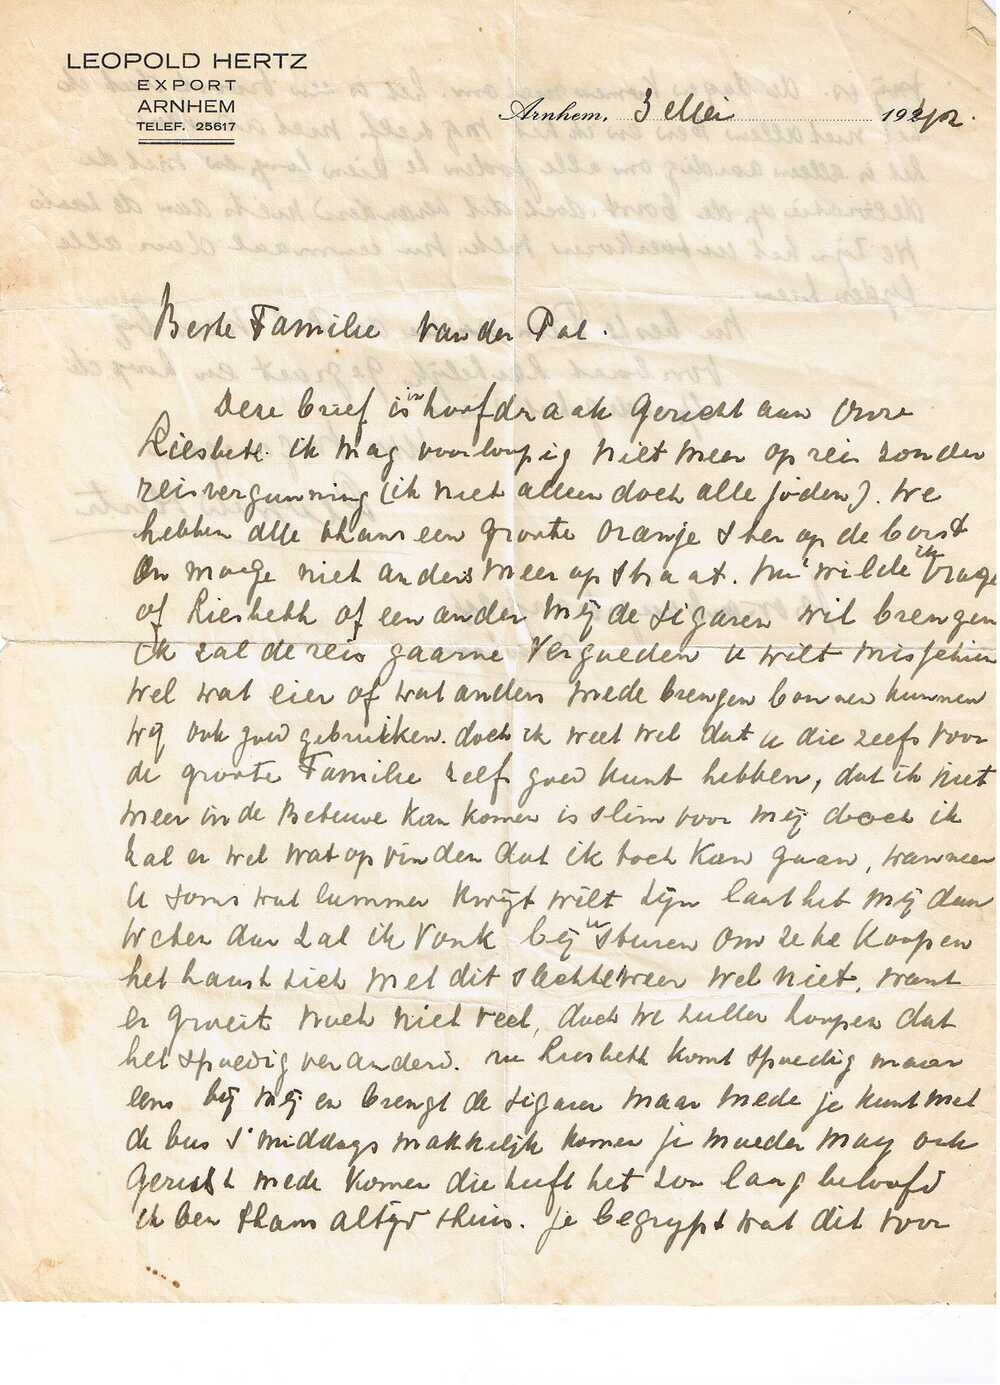 LEOPOLD HERTZ
EXPORT
ARNHEM
TELEF. 25617
Arnhem, 3 Mei 1942.
Beste Familie van der Pol.
Deze brief is in hoofdzaak gericht aan Uwe
Liesbeth. ik mag voorloopig niet meer op reis zonder
reisvergunning (ik niet alleen doch alle joden). We
hebben alle thans een groote oranje ster op de borst
en moge niet anders meer op straat. Nu wilde ik vrage
of Liesbeth of een ander mij de sigaren wil brengen
ik zal de reis gaarne vergoeden u wilt misschien
wel wat eier of wat anders mede brengen bonnen kunnen
wij ook goed gebruiken. doch ik weet wel dat u die zeefs voor
de groote Familie zelf goed kunt hebben, dat ik niet
meer in de Betuwe kan komen is slim voor mij doch ik
zal er wel wat op vinden dat ik toch kan gaan, wanneer
U soms wat lammer kwijt wilt zijn laat het mij dan
weten dan zal ik Vonk bij u sturen om ze te koopen
het haast zich met dit slechte weer wel niet, want
er groeit noch niet veel, doch we zullen hoopen dat
het spoedig veranderd. nu Liesbeth komt spoedig maar
eens bij mij en brengt de sigaren maar mede je kunt met
de bus s'middags makkelijk komen je moeder mag ook
gerust mede komen die heeft het zoo lang beloofd
ik ben thans altijd thuis. je begrijpt wat dit voor